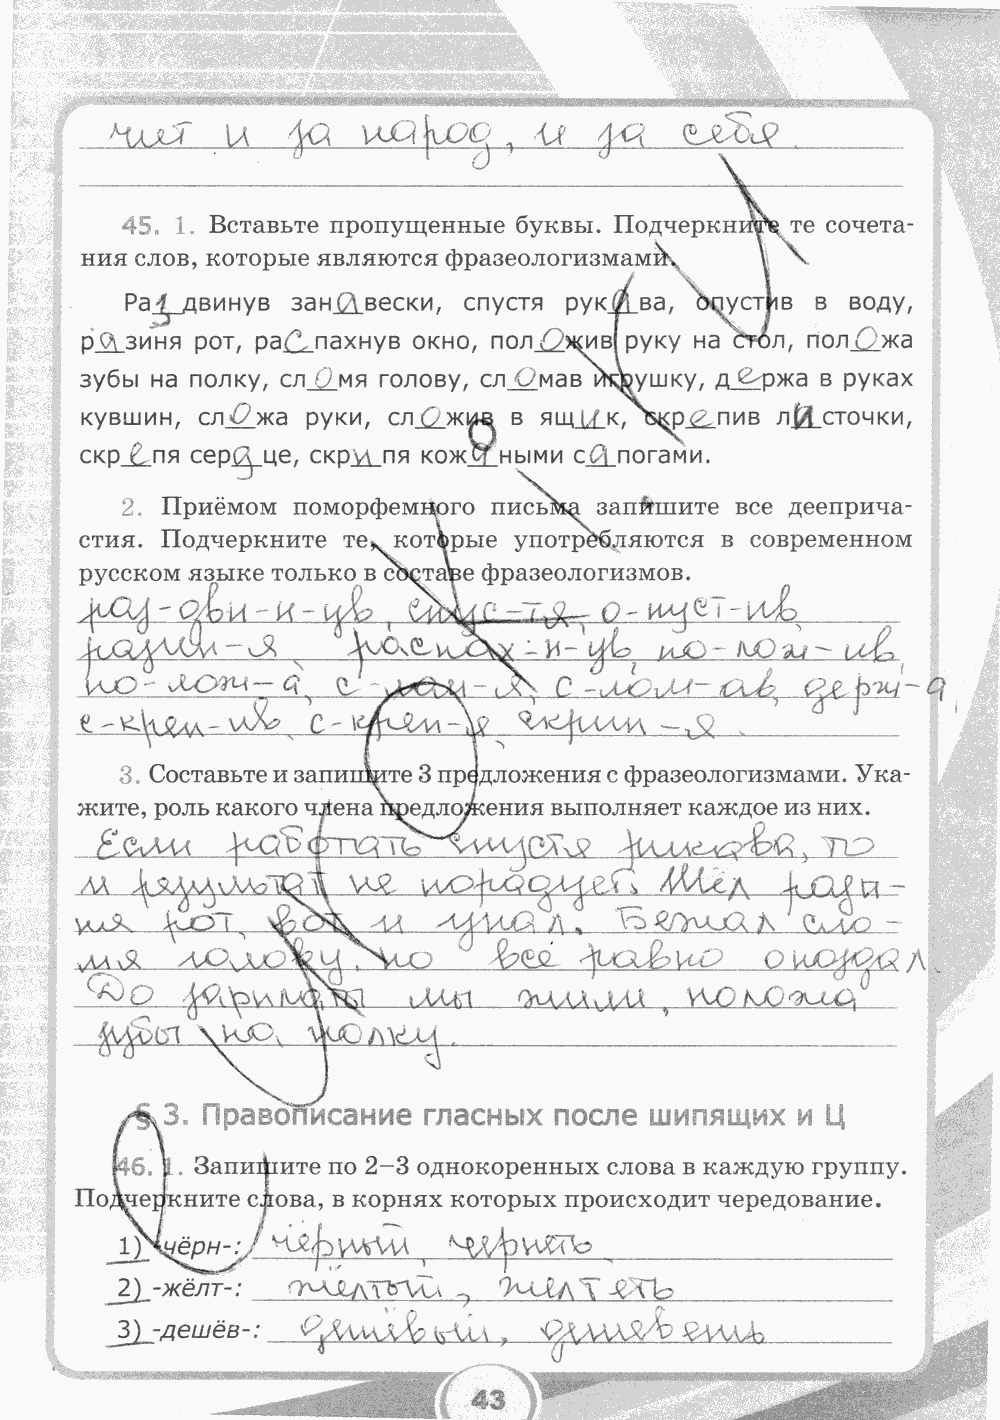 чит и за народ, и за себя.
45. 1. Вставьте пропущенные буквы. Подчеркните те сочета-
ния слов, которые являются фразеологизмами.
Раздвинув занавески, спустя рукава, опустив в воду,
разиня рот, распахнув окно, положив руку на стол, положа
зубы на полку, сломя голову, сломав игрушку, держа в руках
кувшин, сложа руки, сложив в ящик, скрепив листочки,
скрепя сердце, скрипя кожаными сапогами.
2. Приёмом поморфемного письма запишите все дееприча-
стия. Подчеркните те, которые употребляются в современном
русском языке только в составе фразеологизмов.
раз-дви-н-ув, спус-тя, о-пуст-ив,
разин-я, распах-н-ув, по-лож-ив,
по-лож-а, с-лом-я, с-лом-ав, держ-а,
с-креп-ив, с-креп-я, скрип-я.
3. Составьте и запишите 3 предложения с фразеологизмами. Ука-
жите, роль какого члена предложения выполняет каждое из них.
Если работать спустя рукава, то
и результат не порадует. Шёл рази-
ня рот, вот и упал. Бежал сло-
мя голову, но всё равно опоздал.
До зарплаты мы жили, положа
зубы на полку.
§ 3. Правописание гласных после шипящих и Ц
46. 1. Запишите по 2–3 однокоренных слова в каждую группу.
Подчеркните слова, в корнях которых происходит чередование.
1) -чёрн-: чёрный, чернеть
2) -жёлт-: жёлтый, желтеть
3) -дешёв-: дешёвый, дешеветь
43